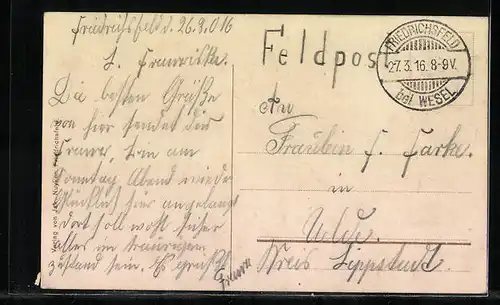 Friedrichsfeld d. 26.3.016
L. Franziska.
Die besten Grüße
von hier sendet dir
Franz, bin am
Sonntag Abend wieder
glücklich hier angelangt
dort soll wohl sicher
alles im traurigen
zustand sein. Es grüßt
Franz
Feldpost
FRIEDRICHSFELD
27.3.16.8-9V.
bei WESEL
An
Fräulein
in
Kreis Lippstadt
Verlag von